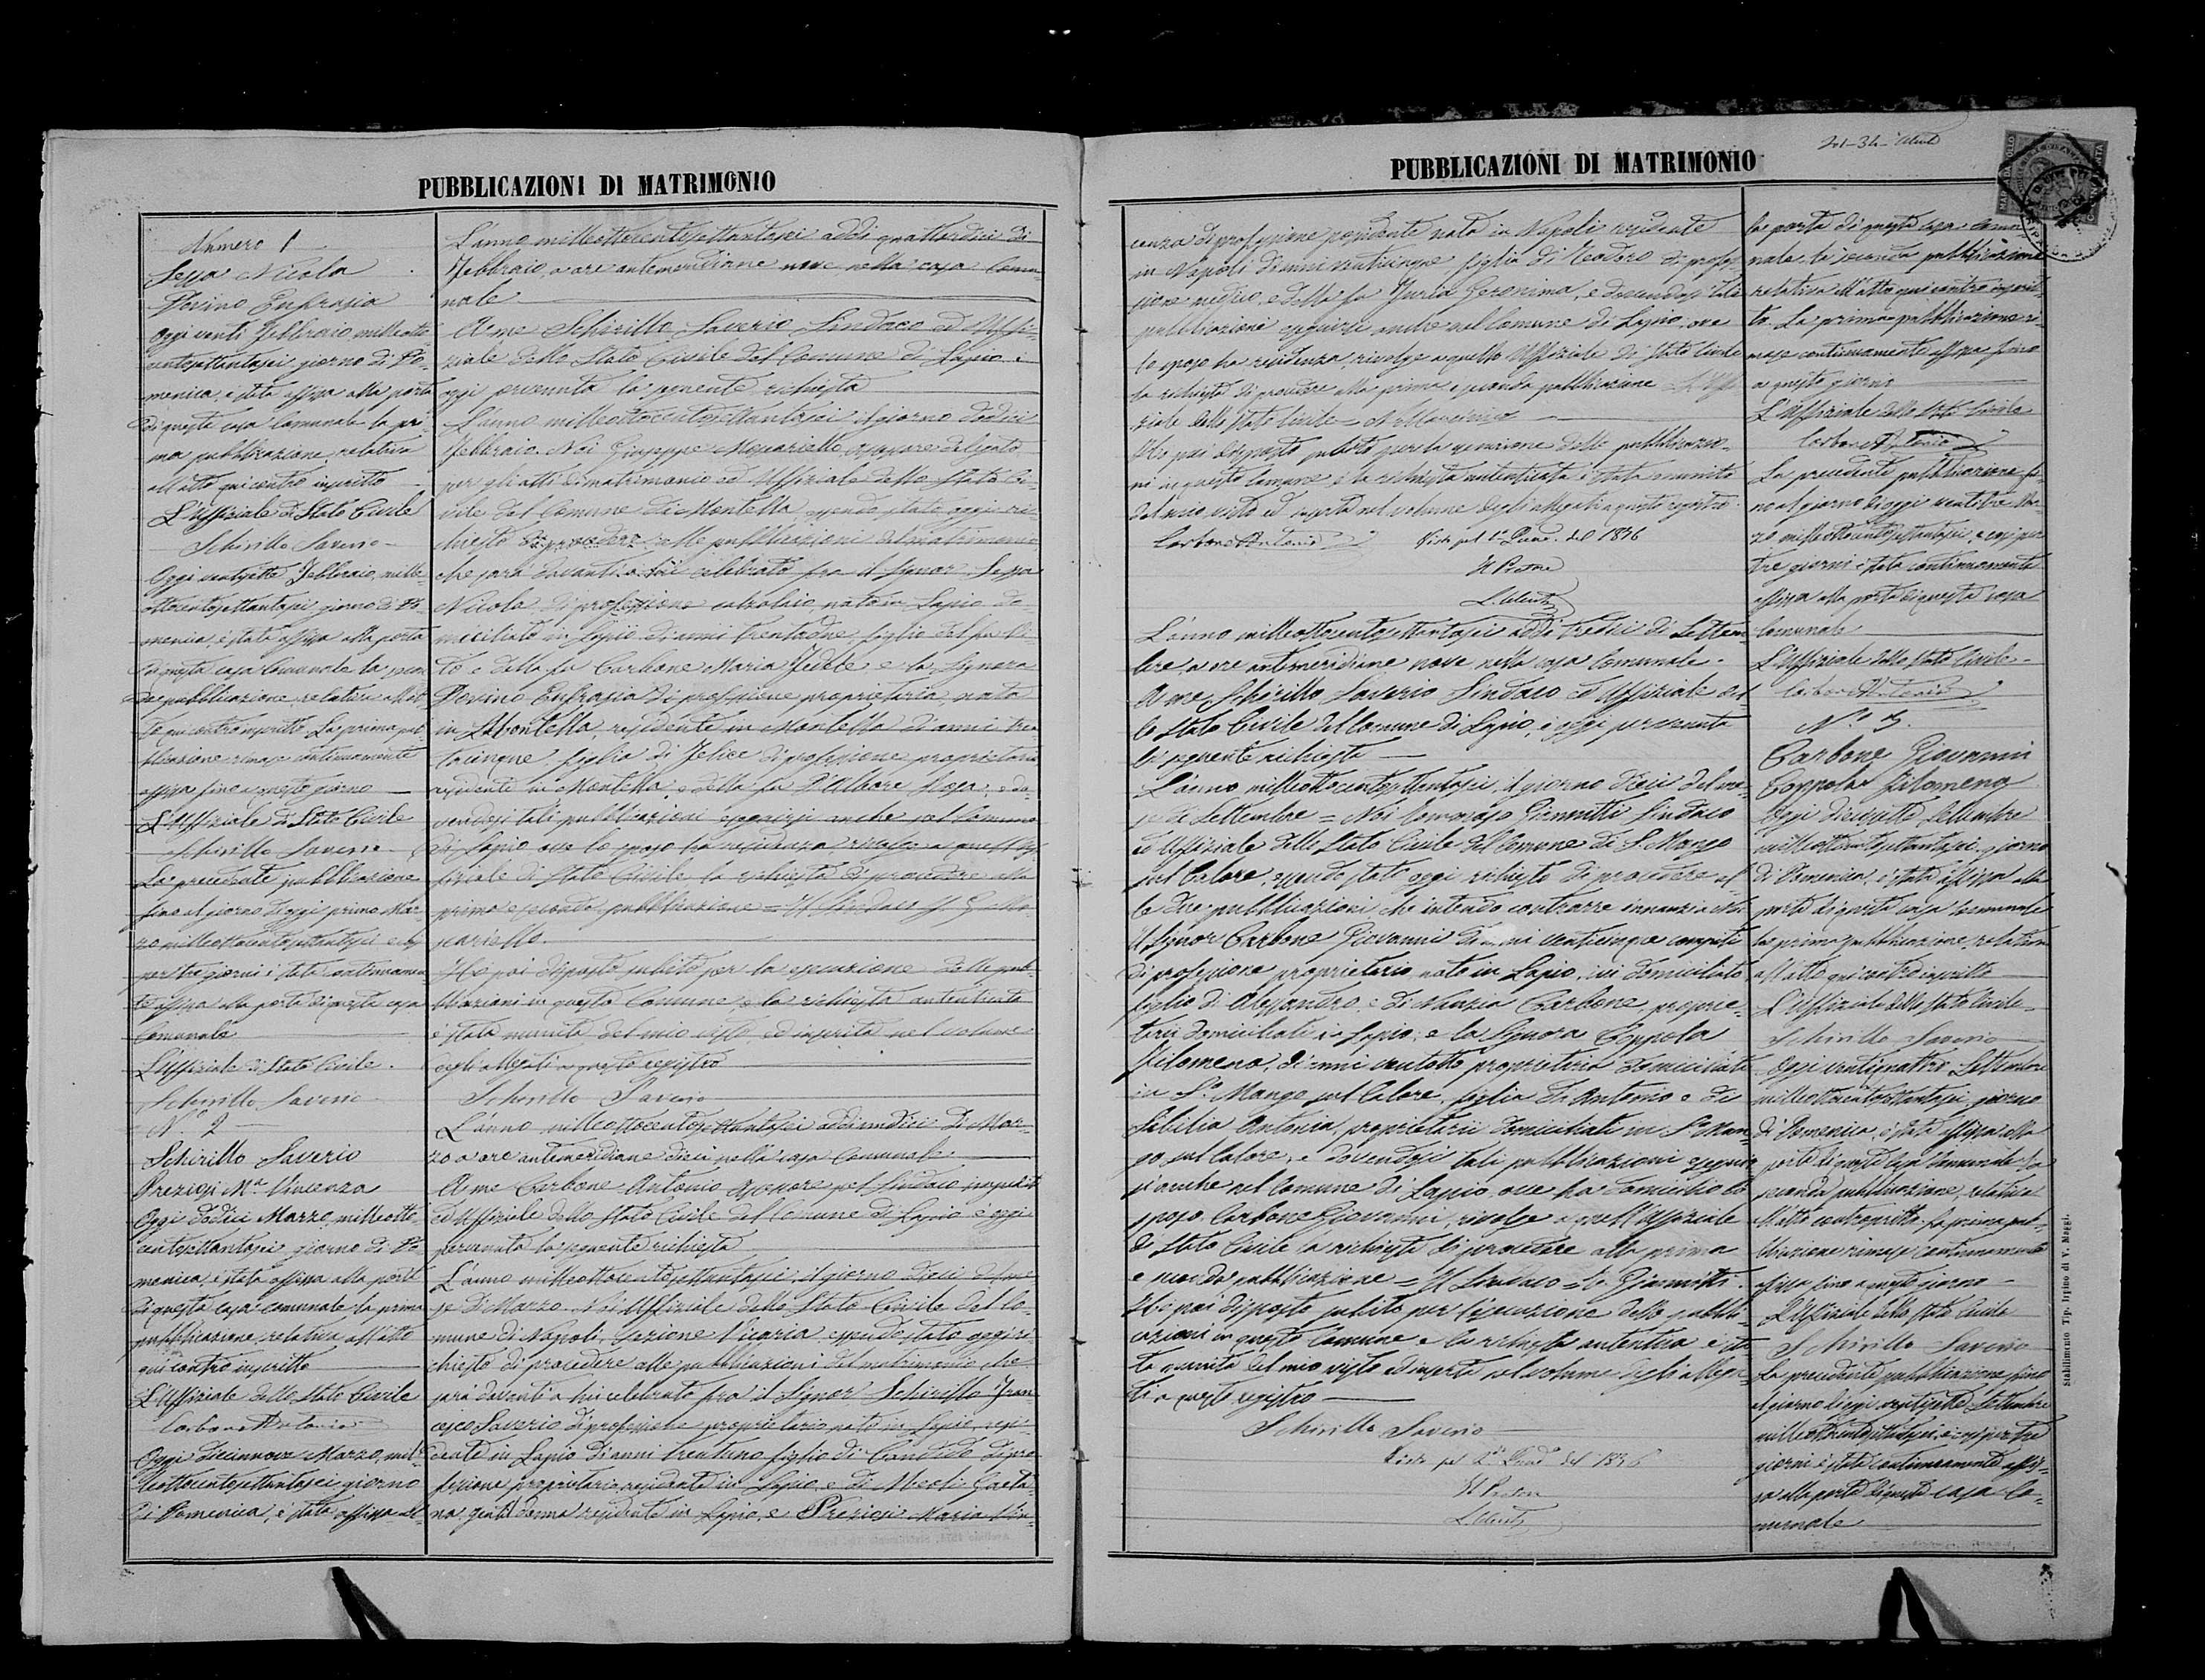 PUBBLICAZIONI DI MATRIMONIO
Numero 1
Sessa Nicola
Devino Enfrasia
Oggi venti Febbraio milleotto
centosettantasei giorno di Do-
menica, è stata affissa alla porta
di questa casa Comunale la pri-
ma pubblicazione relativa
all'atto qui contro inscritto
L'Uffiziale di Stato Civile
Schirillo Saverio
Oggi ventisette Febbraio mille-
ottocentosettantasei giorno di Do-
menica, è stata affissa alla porta
di questa casa Comunale la secon
da pubblicazione relativa all'at-
to qui contro inscritto. La prima pub-
blicazione rimase continuamente
affissa fino a questo giorno
L'Uffiziale di Stato Civile
Schirillo Saverio
La precedente pubblicazione
fino al giorno di oggi primo Mar
zo milleottocentosettantasei e così
per tre giorni è stata continuamen
te affissa alla porta di questa casa
Comunale
L'Uffiziale di Stato Civile
Schirillo Saverio
N.º 2
Schirillo Saverio
Preziosi M.a Vincenza
Oggi dodici Marzo milleotto-
centosettantasei giorno di Do
menica, è stata affissa alla porta
di questa casa comunale la prima
pubblicazione relativa all'atto
qui contro inscritto
L'Uffiziale dello Stato Civile
Carbone Antonio
Oggi diciannove Marzo, mil-
leottocentosettantasei giorno
di Domenica, è stata affissa al-
L'anno milleottocentosettantasei addi quattordici di
Febbraio a ore antemeridiane nove nella casa Comu
nale
A me Schirillo Saverio Sindaco ed Uffi-
ziale dello Stato Civile del Comune di Lapio è
oggi pervenuta la seguente richiesta
L'anno milleottocentosettantasei il giorno dodici
Febbraio. Noi Giuseppe Moscariello assessore delegato
per gli atti di matrimonio ed Uffiziale dello Stato Ci
vile del Comune di Montella essendo stato oggi ri-
chiesto di procedere alle pubblicazioni del matrimonio
che sarà davanti a lui celebrato fra il Signor Sessa
Nicola di professione calzolaio nato in Lapio do
miciliato in Lapio di anni trentadue figlio del fu Vi
to e della fu Carbone Maria Fedele e la Signora
Devino Enfrasia di professione proprietaria, nata
in Montella, residente in Montella di anni tren
tacinque figlia di Felice di professione proprietario
residente in Montella e della fu D'Albore Rosa, e do-
vendosi tali pubblicazioni eseguirsi anche nel Comune
di Lapio ove lo sposo ha residenza rivolge a quell'Uf
fiziale di Stato Civile la richiesta di procedere alla
prima e seconda pubblicazione = Il Sindaco f. G. Mo
scariello
Ho poi disposto subito per la esecuzione delle pub
blicazioni in questo Comune, e la richiesta autenticata
è stata munita del mio visto, ed inserita nel volume
degli allegati a questo registro
Schirillo Saverio
L'anno milleottocentosettantasei addi undici di Mar-
zo a ore antemeridiane dieci nella casa Comunale
A me Carbone Antonio Assessore pel Sindaco impedito
ed Uffiziale dello Stato Civile del Comune di Lapio è oggi
pervenuta la seguente richiesta
L'anno milleottocentosettantasei, il giorno dieci del me
se di Marzo. Noi Uffiziale dello Stato Civile del Co-
mune di Napoli, Sezione Vicaria, essendo stato oggi ri
chiesto di procedere alle pubblicazioni del matrimonio che
sarà davanti a lui celebrato fra il Signor Schirillo Fran
cesco Saverio di professione proprietario nato in Lapio, resi-
dente in Lapio di anni trentuno figlio di Candido di pro
fessione proprietario residente in Lapio, e di Meoli Gaeta
na, gentildonna residente in Lapio, e Preziosi Maria Vin-
PUBBLICAZIONI DI MATRIMONIO
cenza di professione possidente nata in Napoli residente
in Napoli di anni venticinque figlia di Teodoro di profes-
sione medico e della fu Furia Geronima, e dovendosi tali
pubblicazioni eseguirsi anche nel Comune di Lapio, ove
lo sposo ha residenza, rivolge a quello Uffiziale di Stato Civile
la richiesta di procedere alla prima e seconda pubblicazione = L'Uffi
ziale dello Stato Civile =
Ho poi disposto subito per la esecuzione delle pubblicazio-
ni in questo Comune e la richiesta autenticata è stata munita
del mio visto ed inserita nel volume degli allegati a questo registro
Carbone Antonio Visto pel 1º Quad. del 1876
Il Pretore
L'anno milleottocentosettantasei addi tredici di Settem-
bre, a ore antimeridiane nove nella casa Comunale.
A me Schirillo Saverio Sindaco ed Uffiziale del
lo Stato Civile del Comune di Lapio, è oggi pervenuta
la seguente richiesta
L'anno milleottocentosettantasei, il giorno dieci del me-
se di Settembre = Noi Tommaso Giannitti Sindaco
ed Uffiziale dello Stato Civile del Comune di S. Mango
sul Calore, essendo stato oggi richiesto di procedere al
le due pubblicazioni che intendo contrarre innanzi a
il Signor Carbone Giovanni di anni venticinque compiti
di professione proprietario, nato in Lapio, ivi domiciliato
figlio di Alessandro, e di Nunzia Carbone, proprie-
tarii domiciliati in Lapio; e la Signora Coppola
Filomena, di anni ventotto proprietaria domiciliata
in S. Mango sul Calore, figlia di Antonio e di
Sibilia Antonia, proprietarii domiciliati in S. Man-
go sul Calore, e dovendosi tali pubblicazioni eseguir
si anche nel Comune di Lapio, ove ha domicilio lo
sposo Carbone Giovanni, rivolge a quell'Uffiziale
di Stato Civile la richiesta di procedere alla prima
e seconda pubblicazione = Il Sindaco = T. Giannitti
Ho poi disposto subito per l'esecuzione delle pubbli-
cazioni in questo Comune e la richiesta autentica è sta
ta munita del mio visto ed inserita nel volume degli allega-
ti a questo registro
Schirillo Saverio
Visto pel 2º Quad. del 1876
Il Pretore
la porta di questa casa Comu-
nale la seconda pubblicazione
relativa all'atto qui contro inscrit-
to. La prima pubblicazione ri-
mase continuamente affissa fino
a questo giorno
L'Uffiziale dello Stato Civile
Carbone Antonio
La precedente pubblicazione fi-
no al giorno di oggi ventidue Mar-
zo milleottocentosettantasei e così per
tre giorni è stata continuamente
affissa alla porta di questa casa
Comunale
L'Uffiziale dello Stato Civile
Carbone Antonio
N.º 3.
Carbone Giovanni
Coppola Filomena
Oggi diciassette Settembre
milleottocentosettantasei giorno
di Domenica, è stata affissa alla
porta di questa casa comunale
la prima pubblicazione relativa
all'atto qui contro inscritto
L'Uffiziale dello Stato Civile
Schirillo Saverio
Oggi ventiquattro Settembre
milleottocentosettantasei giorno
di Domenica, è stata affissa alla
porta di questa casa Comunale la
seconda pubblicazione, relativa
all'atto controscritto. La prima pub-
blicazione rimase continuamente
affissa fino a questo giorno
L'Uffiziale dello Stato Civile
Schirillo Saverio
La precedente pubblicazione fino
al giorno di oggi ventisette Settembre
milleottocentosettantasei, e così per tre
giorni è stata continuamente affis-
sa alla porta di questa casa Co-
munale
Stabilimento Tip. Irpino di V. Maggi.